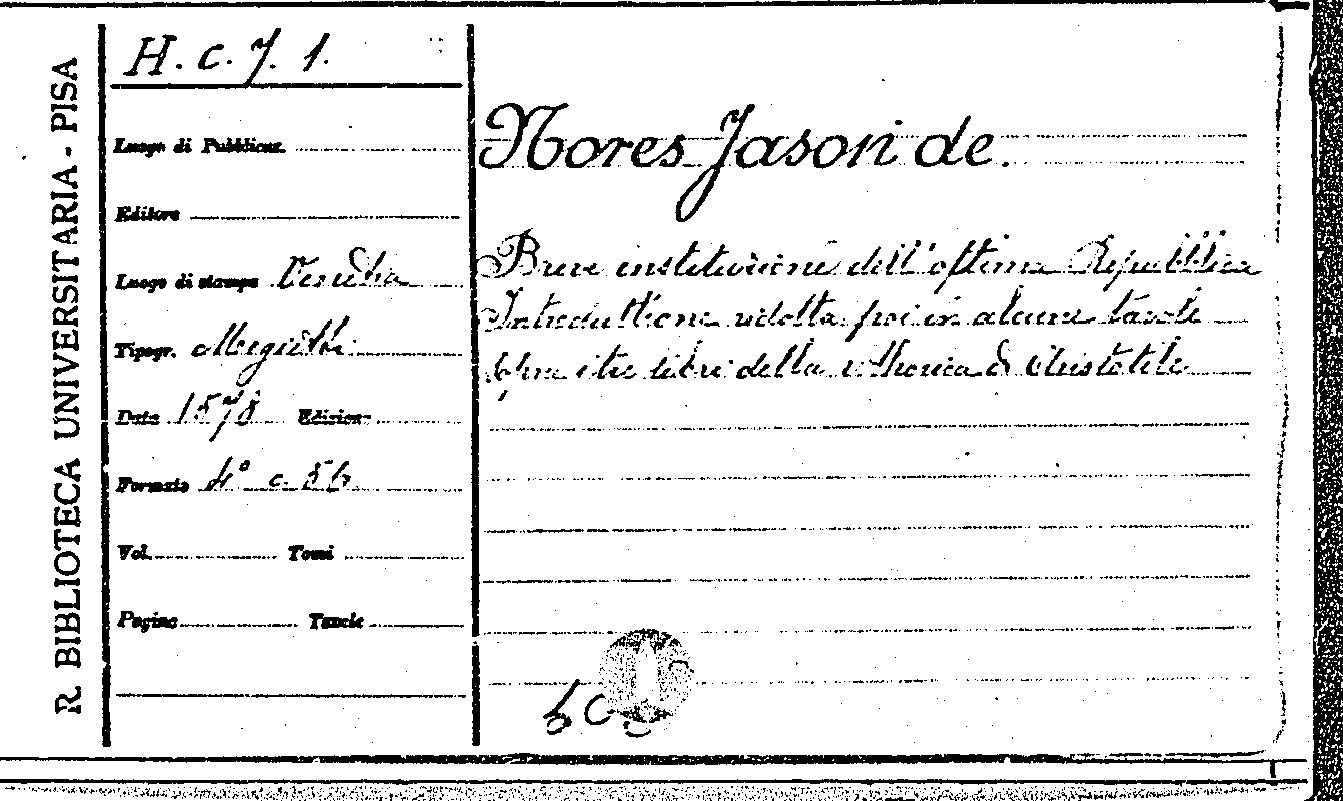 R. BIBLIOTECA UNIVERSITARIA - PISA
H. c. 7. 1.
Luogo di Pubblicaz.
Editore
Luogo di stampa Venetia
Tipogr. Megietti
Data 1578 Edizione
Formato 4° c. 56
Vol. Tomi
Pagine Tavole
Nores Jason de.
Breve institutione dell'ottima Republica
Introduttione ridotta poi in alcune tavole
sopra i tre libri della rethorica di Aristotile